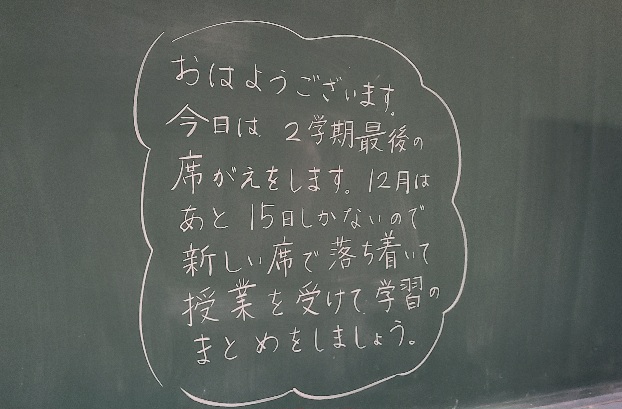 おはようございます。
今日は 2学期最後の
席がえをします。12月は
あと 15日しかないので
新しい席で落ち着いて
授業を受けて学習の
まとめをしましょう。